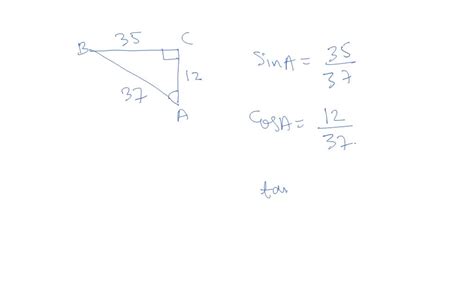 B 35 C
12
37
A
sin A = 35/37
Cos A = 12/37.
tan